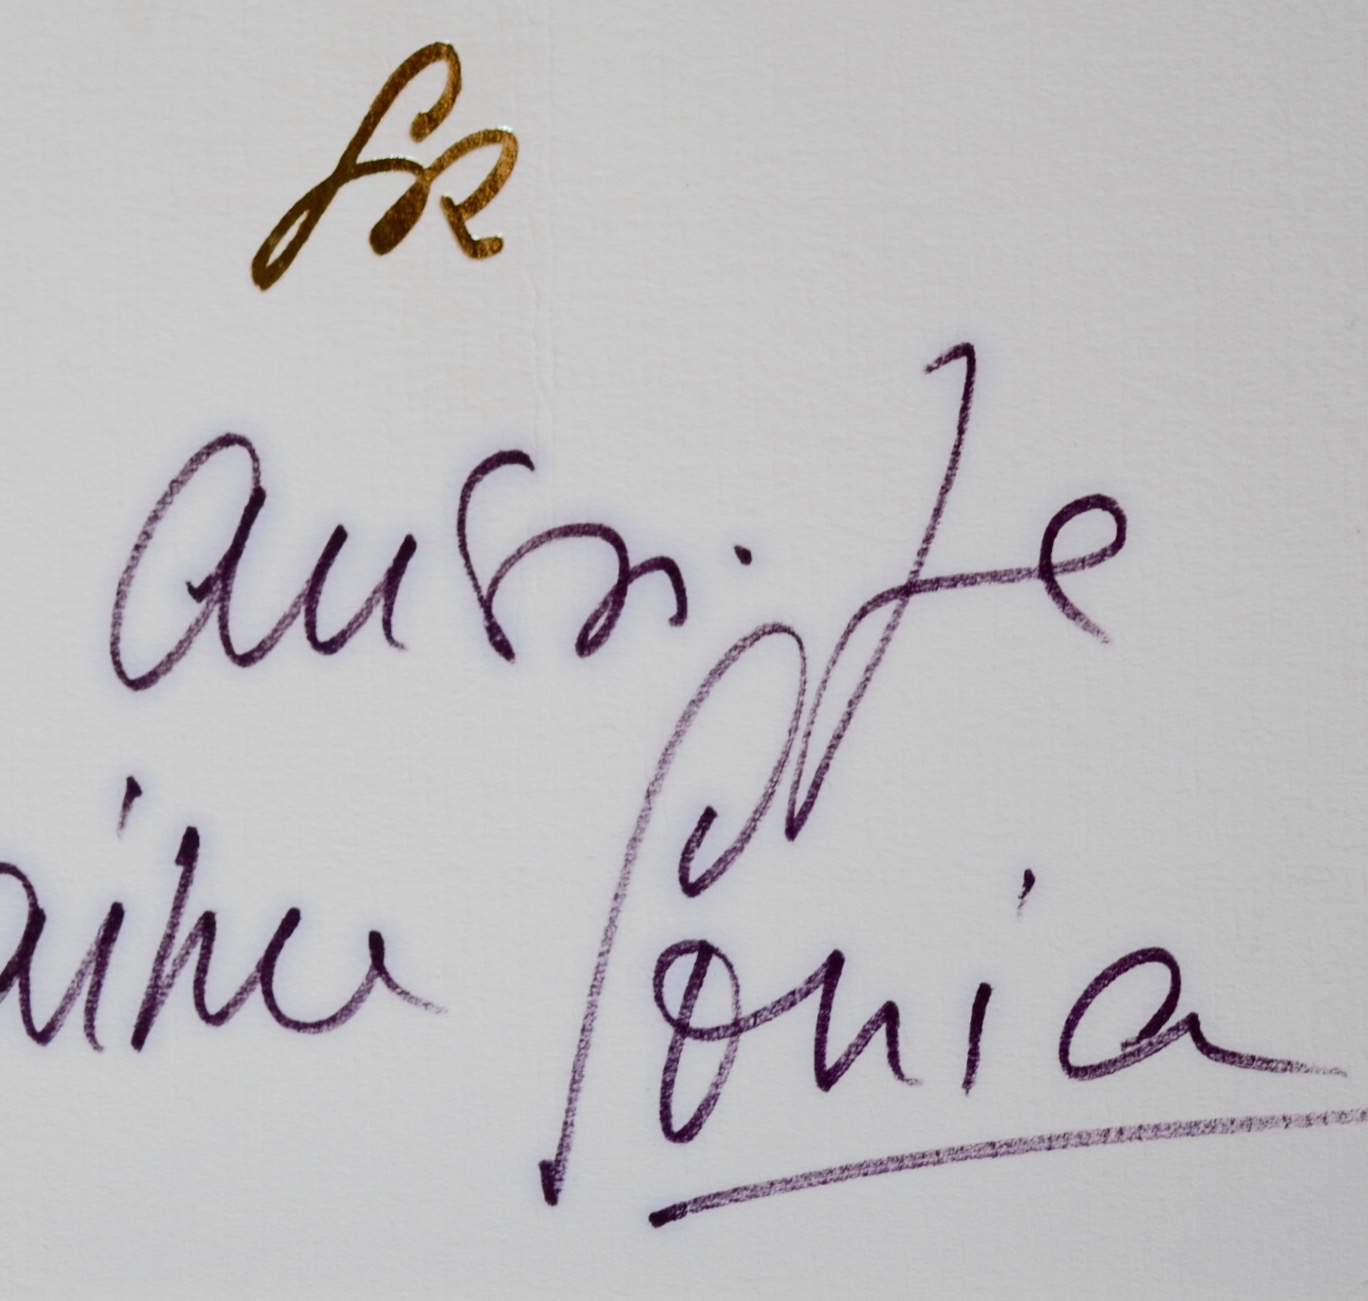 SR
aussi. Je
aime
Sonia